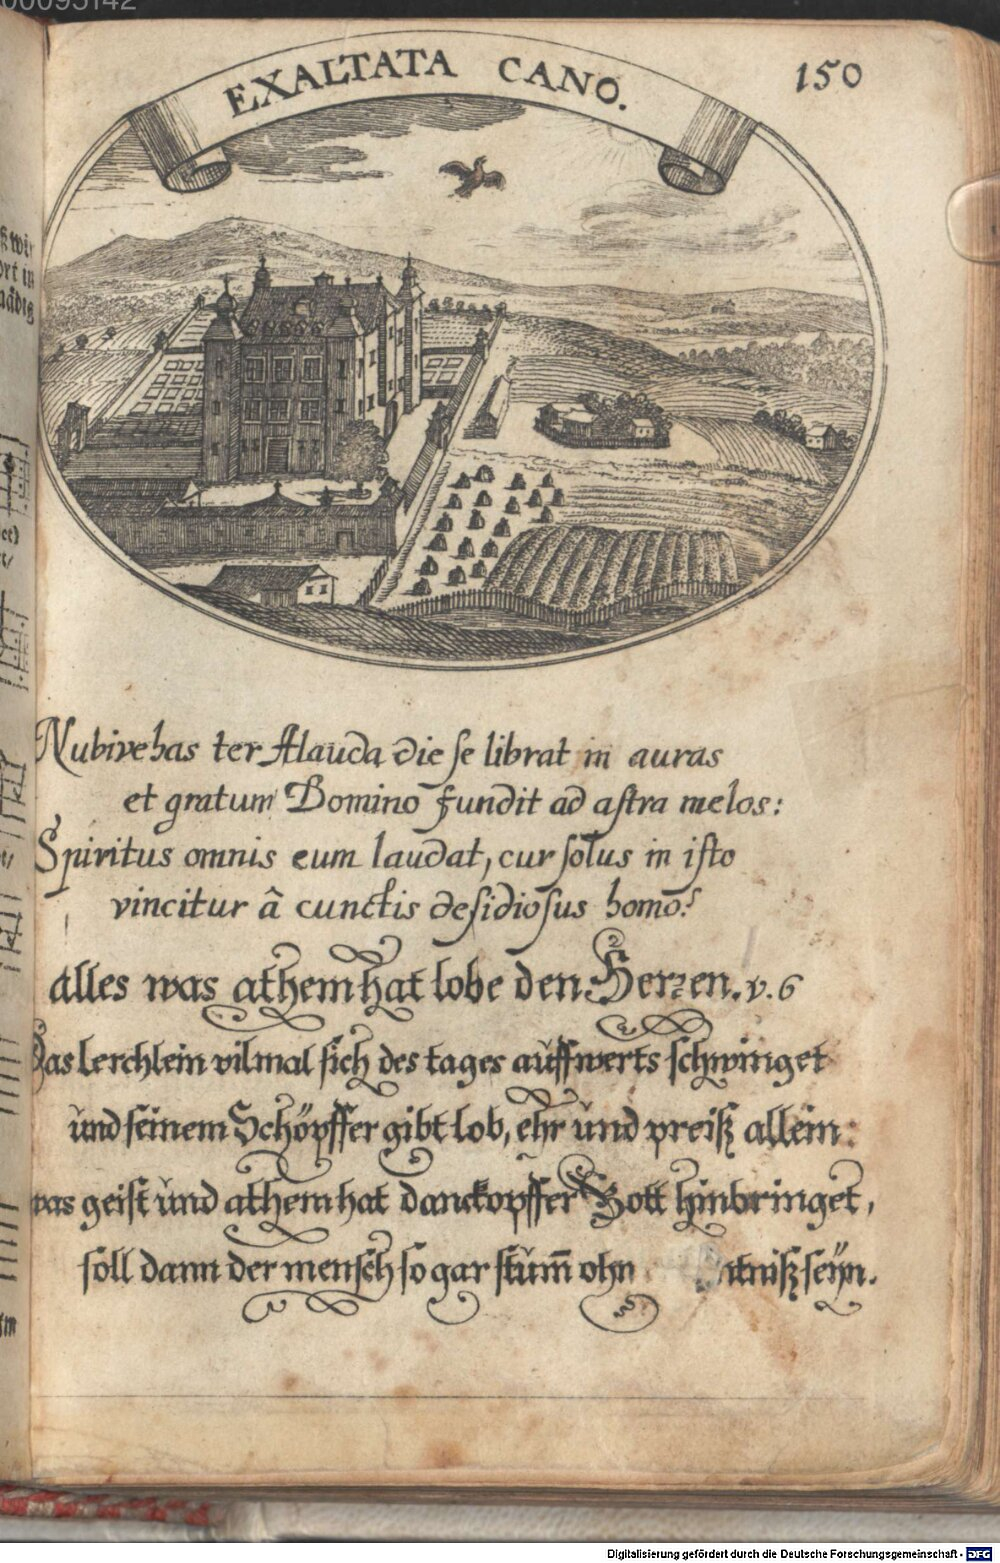 00095142
EXALTATA CANO.
150
Nubivehas ter Alauda die se librat in auras
et gratum Domino fundit ad astra melos:
Spiritus omnis eum laudat, cur solus in isto
vincitur â cunctis desidiosus homo?
Alles was athem hat lobe den Herzen. v. 6
Das lerchlein vilmal sich des tages auffwerts schwinget
und seinem Schöpffer gibt lob, ehr und preiß allein:
was geist und athem hat danckopffer Gott hinbringet,
soll dann der mensch so gar stum̄ ohn seÿn.
Digitalisierung gefördert durch die Deutsche Forschungsgemeinschaft - DFG